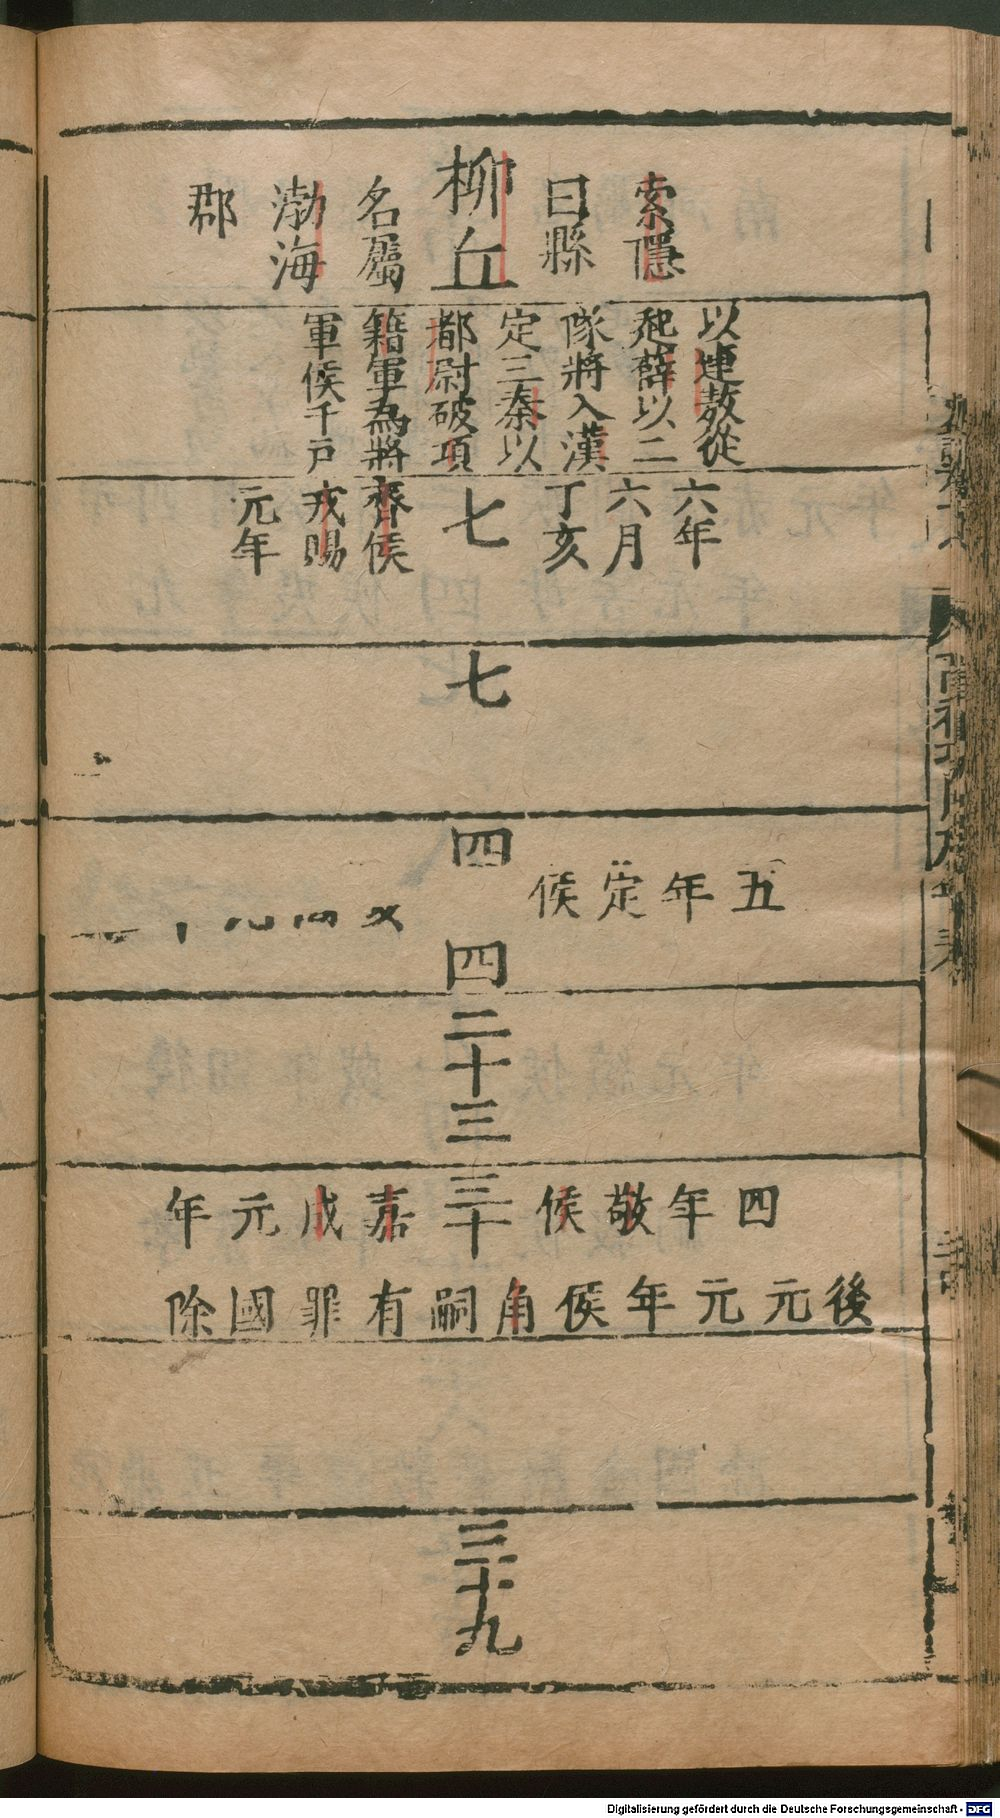 柳丘
索隱
曰縣
名屬
渤海
郡
以連敖從
起薛以二
隊將入漢
定三秦以
都尉破項
籍軍為將
軍侯千戶
七
六年
六月
丁亥
齊侯
戎賜
元年
七
四
五年定侯
四
二十三
三十
四年敬侯嘉成元年
後元元年侯角嗣有罪國除
三十九
Digitalisierung gefördert durch die Deutsche Forschungsgemeinschaft - DFG